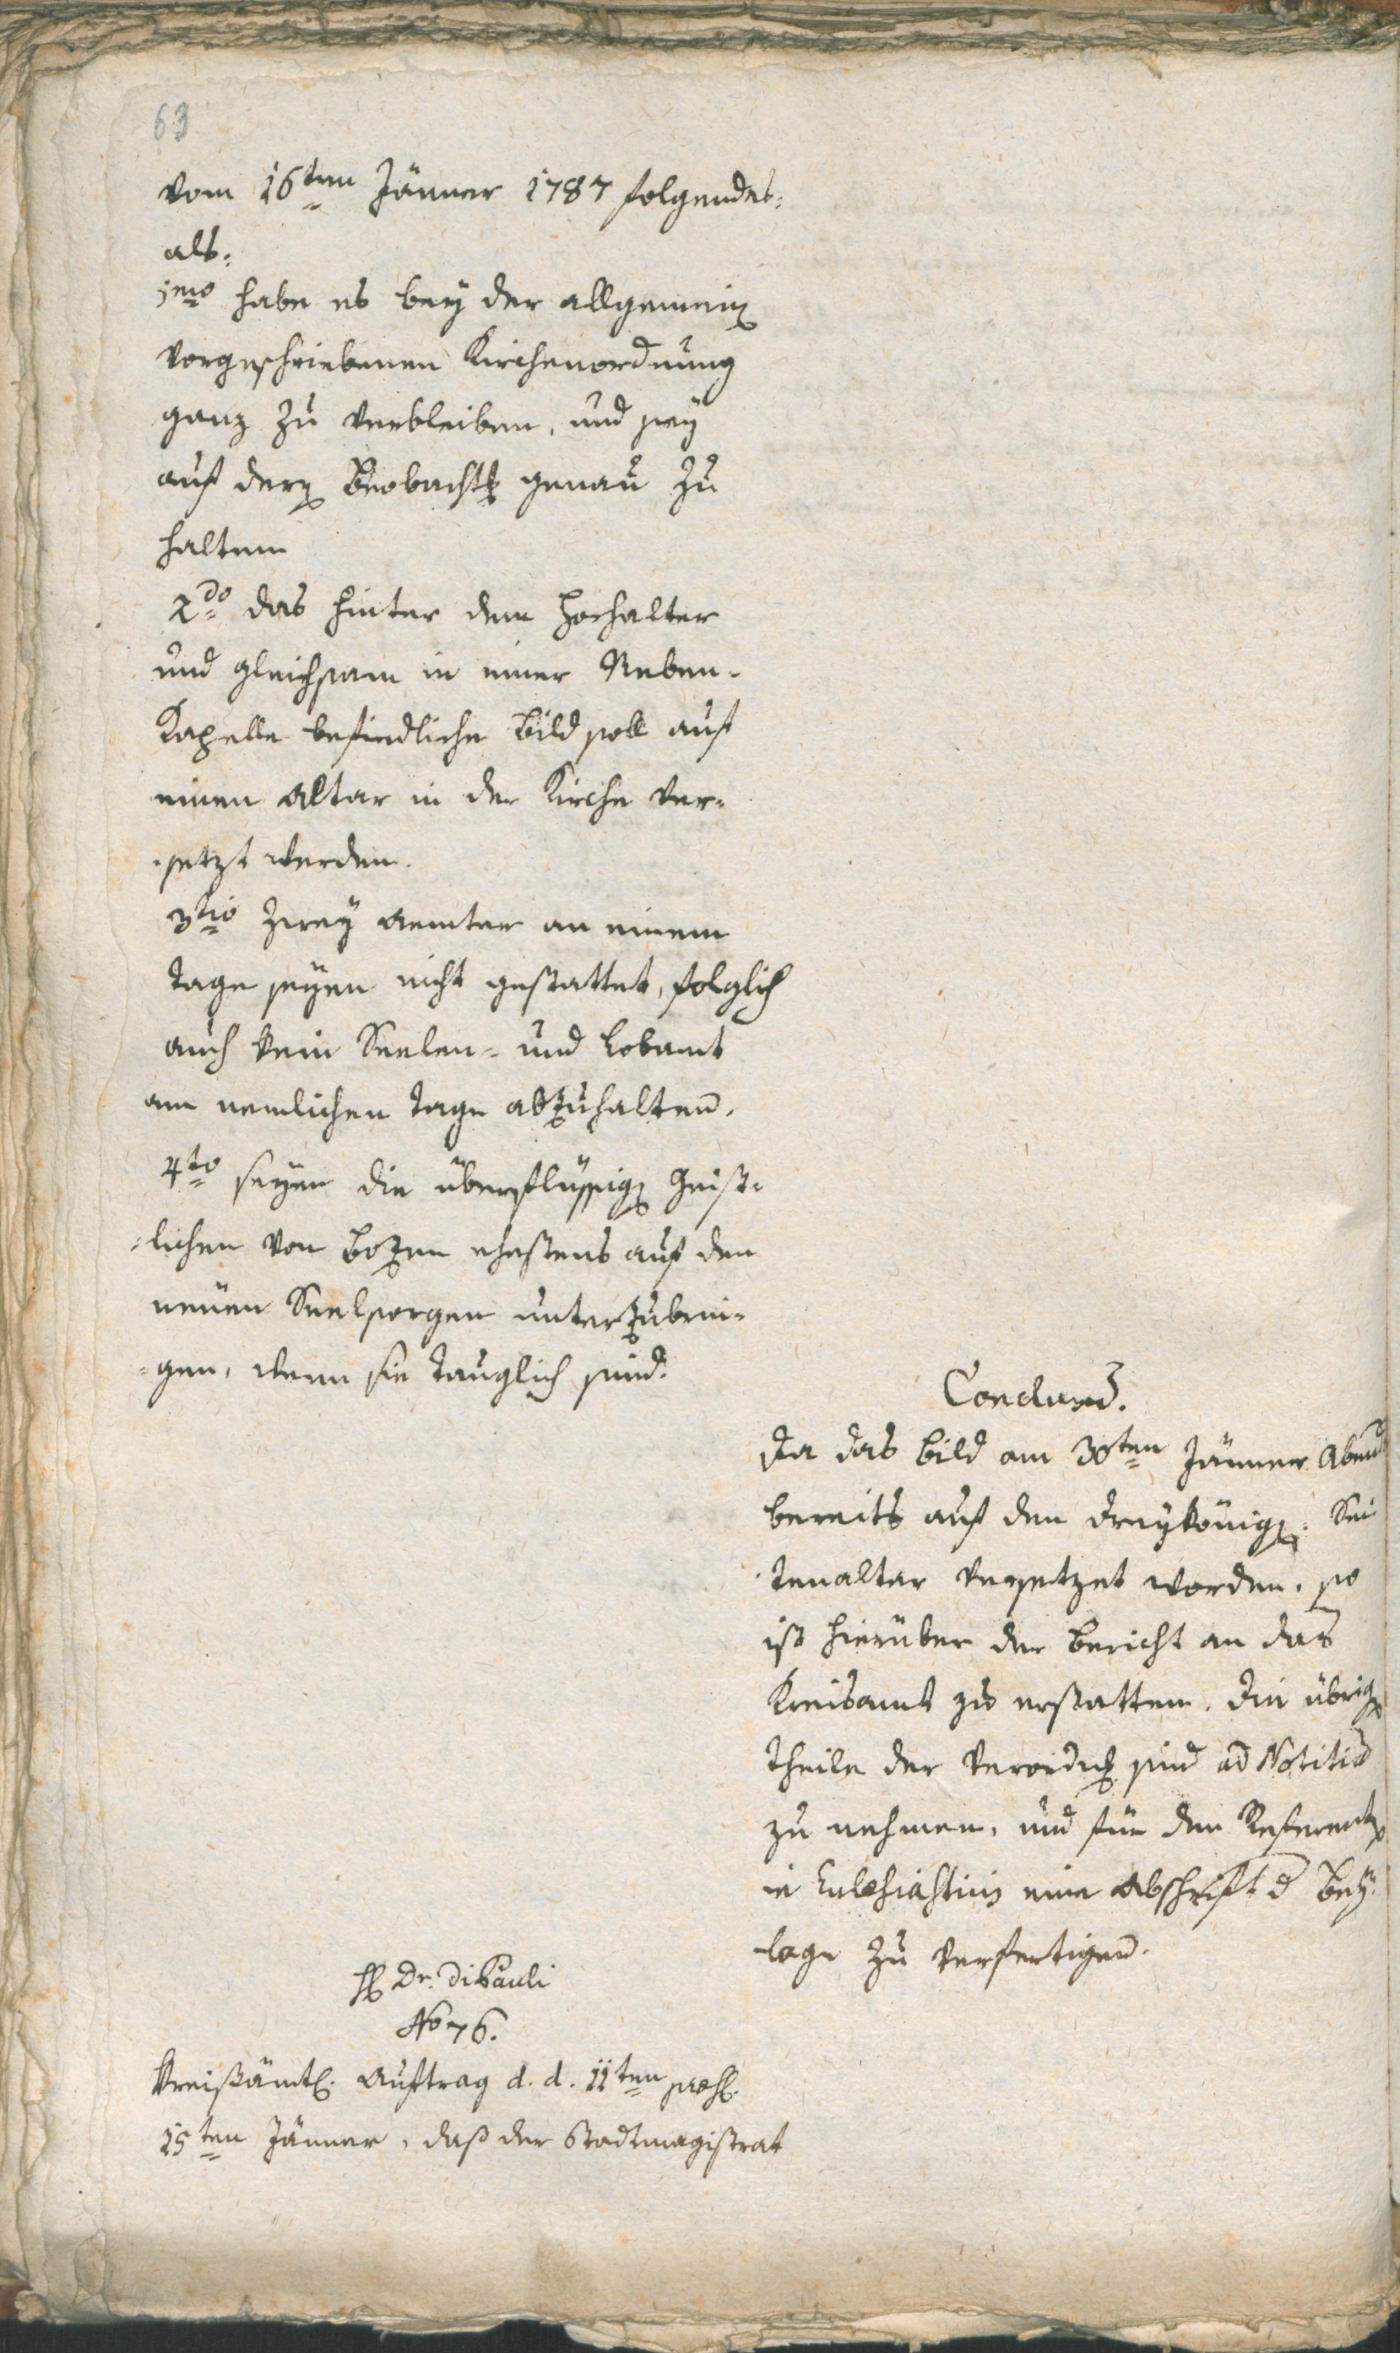 63
vom 16ten Jänner 1787 folgendes:
als:
1mo habe es bey der allgemein
vorgeschriebenen Kirchenordnung
ganz zu verbleiben, und sey
auf der Beobacht genau zu
halten
2do das hinter dem Hochalter
und gleichsam in einer Neben-
Kapelle befindliche Bild soll auf
einen Altar in der Kirche ver-
-setzt werden.
3tio Zwey Aemter an einem
Tage seyen nicht gestattet, folglich
auch kein Seelen- und Lobamt
am nemlichen Tage abzuhalten.
4to seyen die überflüssig Geist-
-lichen von Bozen ehestens auf den
neuen Seelsorgen unterzubrin-
-gen, wenn sie tauglich sind.
Conclusd.
Da das Bild am 30ten Jänner Abend
bereits auf den Dreykönig- Sei
tenaltar versetzet worden, so
ist hierüber der Bericht an das
Kreisamt zu erstatten. Die übrig
Theile der Verordn sind ad Notitia
zu nehmen, und für den Referent
in Eclesiasticis eine Abschrift d Bey-
-lage zu verfertigen.
H Dr. DiPauli
No 76.
Kreißämtl. Auftrag d. d. 11ten praes.
15ten Jänner, daß der Stadtmagistrat